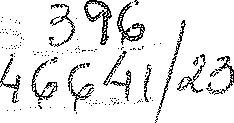 396
46641/23